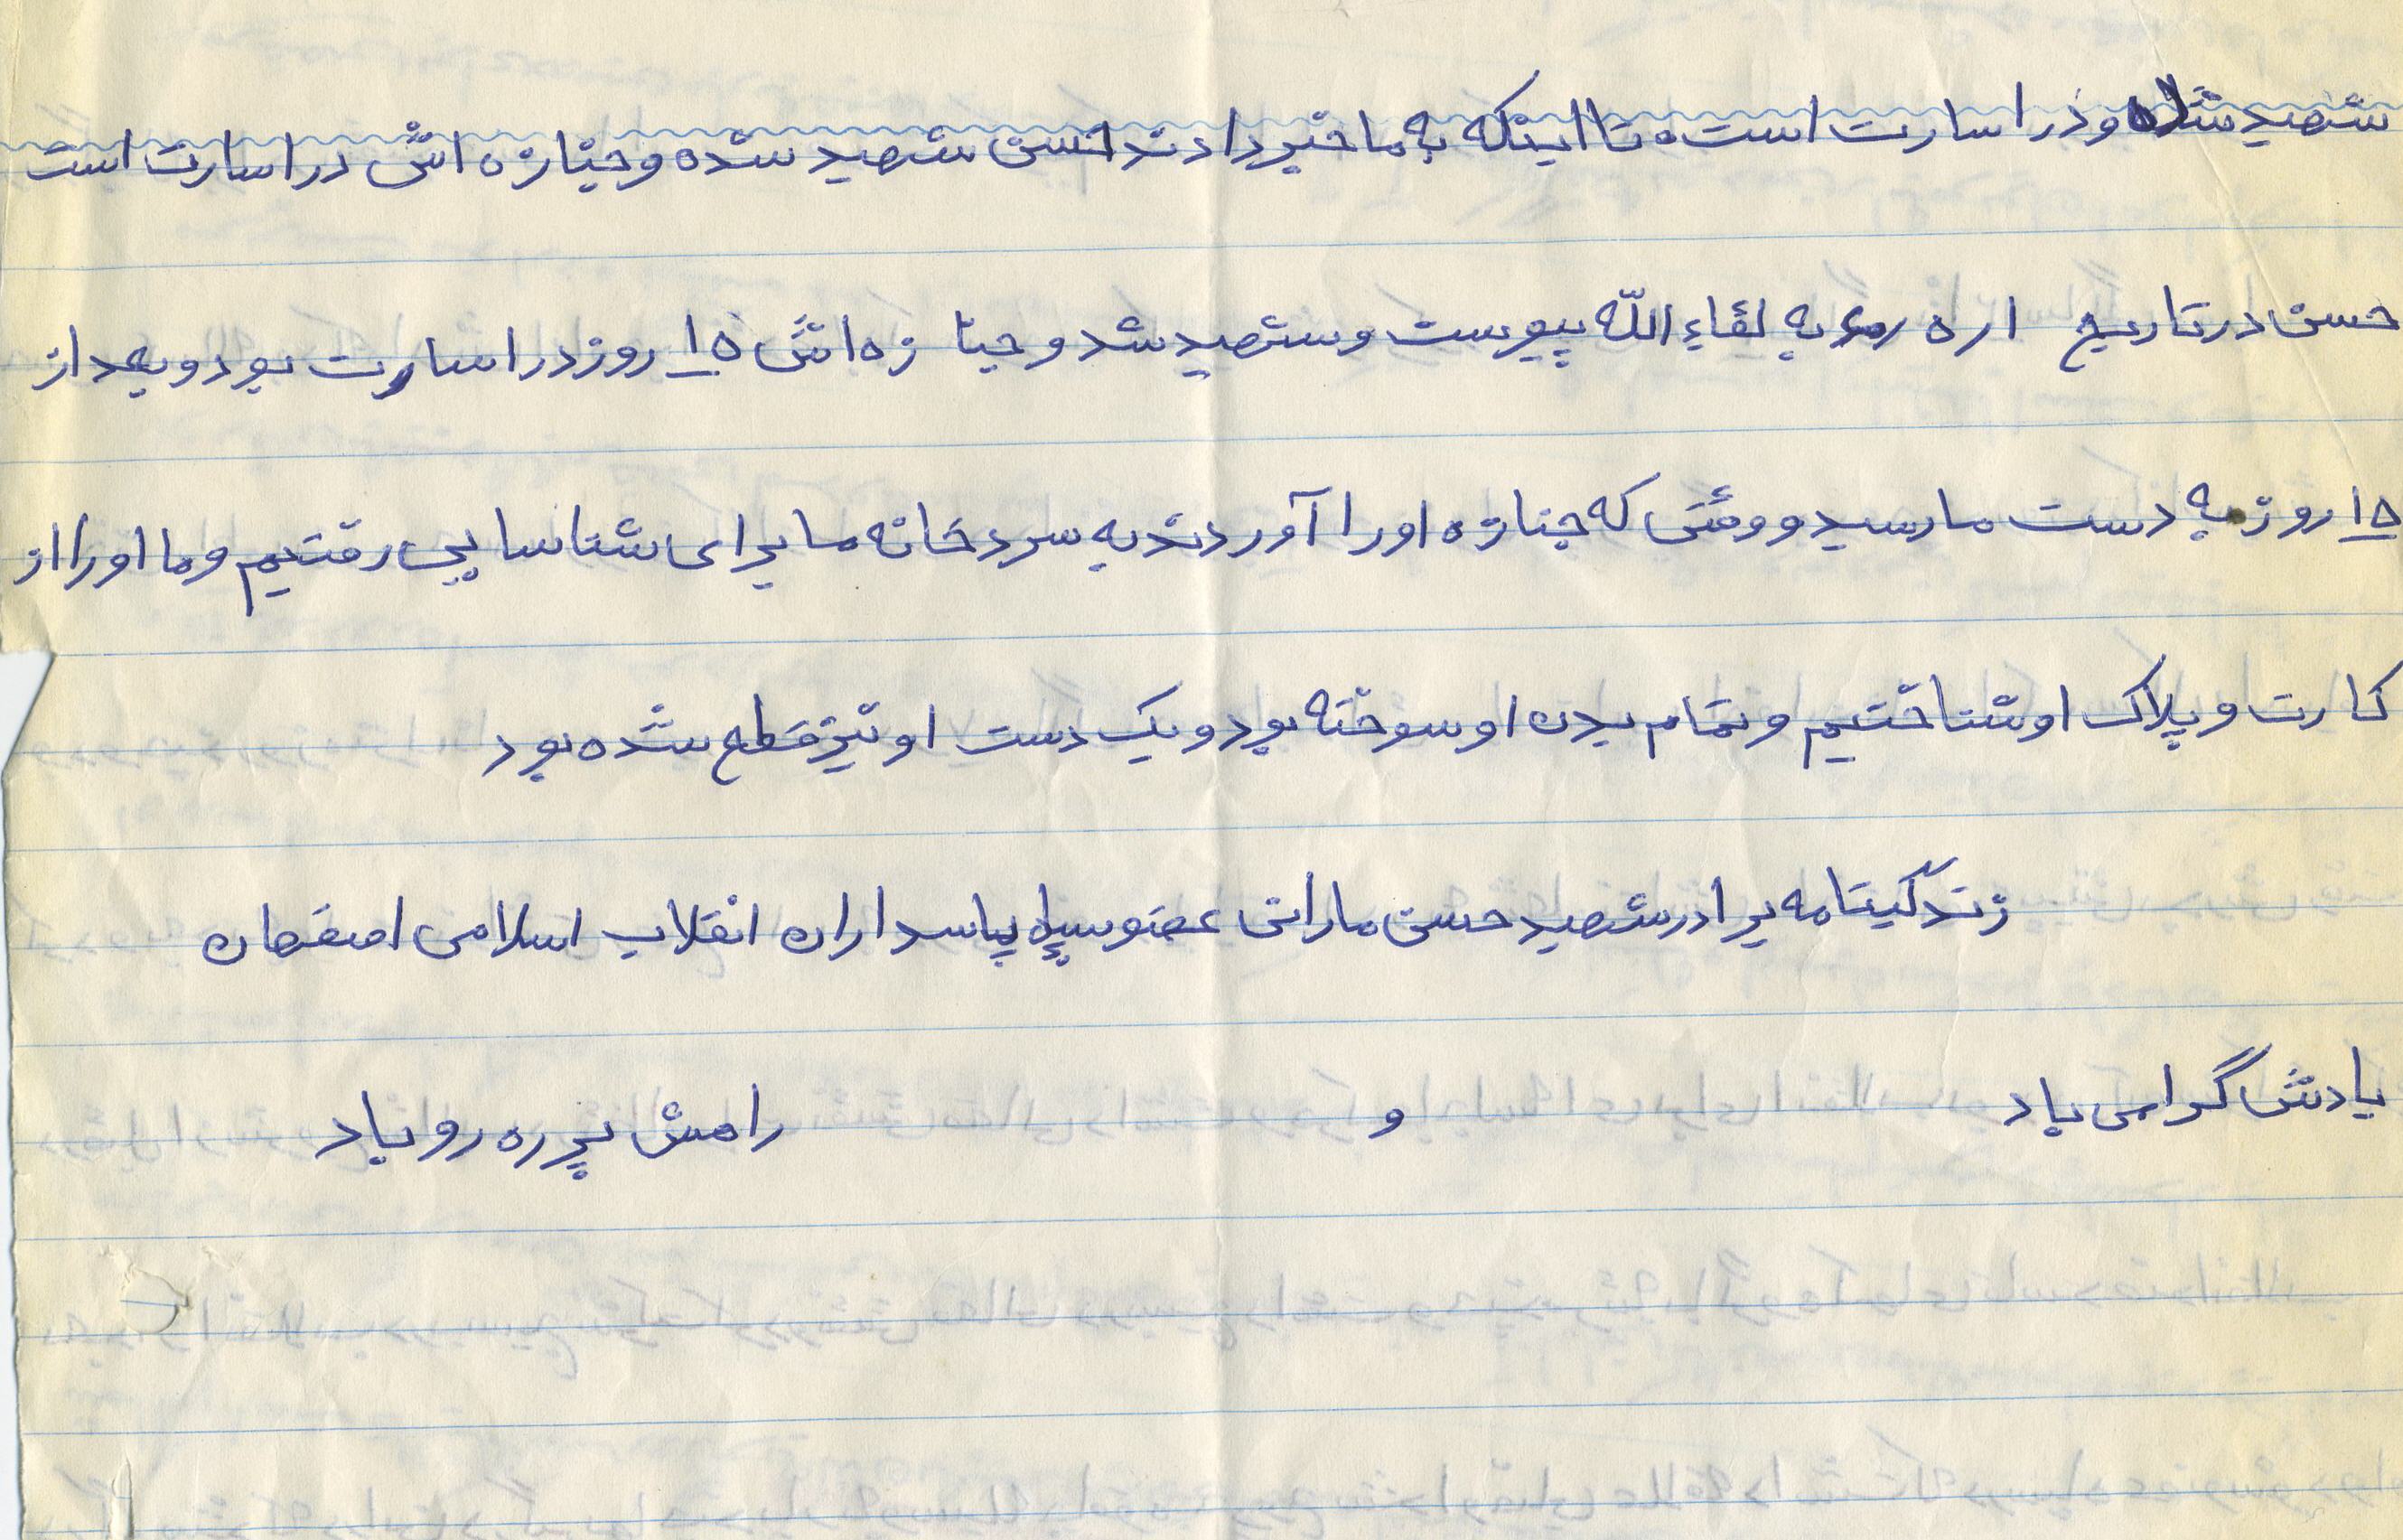 شهید شده و در اسارت است. تا اینکه به ما خبر دادند حسن شهید شده و جنازه اش در اسارت است
حسن در تاریخ به لقاء الله پیوست و شهید شد و جنا زه اش ۱۵ روز در اسارت بود و بعد از
۱۵ روز به دست ما رسید و وقتی که جنازه او را آوردند به سردخانه ما برای شناسایی رفتیم و ما او را از
کارت و پلاک او شناختیم و تمام بدن او سوخته بود و یک دست او نیز قطع شده بود
زندگینامه برادر شهید حسن مارانی عضو سپاه پاسداران انقلاب اسلامی اصفهان
یادش گرامی باد و راهش پر ره رو باد